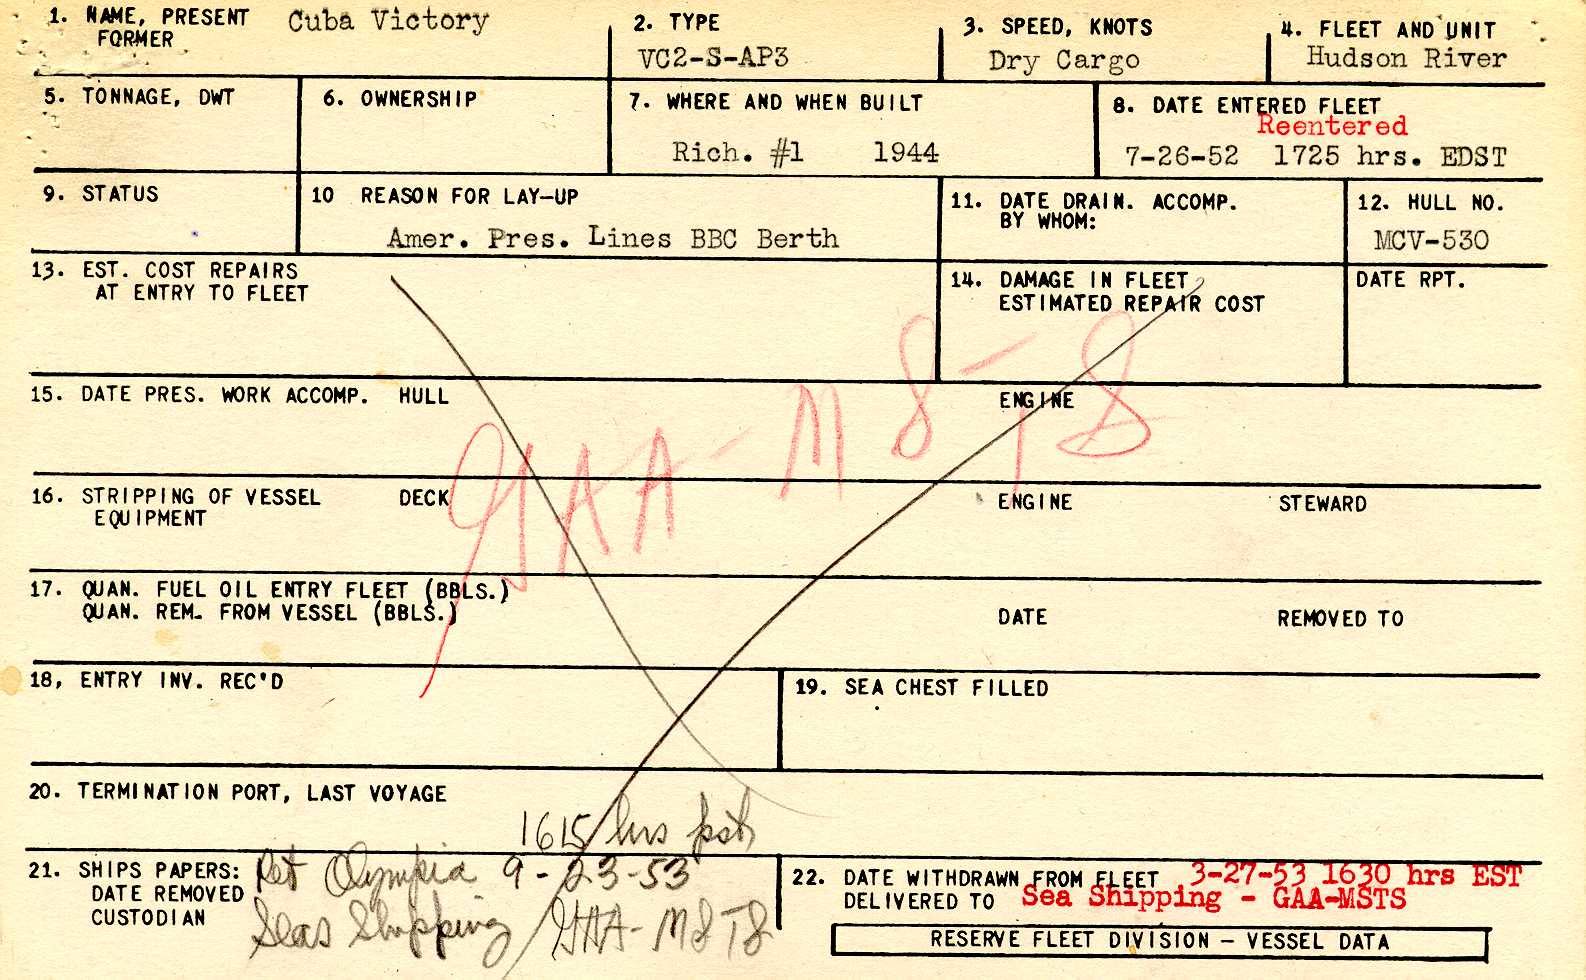 1. NAME, PRESENT Cuba Victory
FORMER
2. TYPE
VC2-S-AP3
3. SPEED, KNOTS
Dry Cargo
4. FLEET AND UNIT
Hudson River
5. TONNAGE, DWT
6. OWNERSHIP
7. WHERE AND WHEN BUILT
Rich. #1 1944
8. DATE ENTERED FLEET
Reentered
7-26-52 1725 hrs. EDST
9. STATUS
10 REASON FOR LAY-UP
Amer. Pres. Lines BBC Berth
11. DATE DRAIN. ACCOMP.
BY WHOM:
12. HULL NO.
MCV-530
13. EST. COST REPAIRS
AT ENTRY TO FLEET
14. DAMAGE IN FLEET
ESTIMATED REPAIR COST
DATE RPT.
GAA-MSTS
15. DATE PRES. WORK ACCOMP. HULL ENGINE
16. STRIPPING OF VESSEL DECK ENGINE STEWARD
EQUIPMENT
17. QUAN. FUEL OIL ENTRY FLEET (BBLS.)
QUAN. REM. FROM VESSEL (BBLS.) DATE REMOVED TO
18, ENTRY INV. REC'D
19. SEA CHEST FILLED
20. TERMINATION PORT, LAST VOYAGE
1615 hrs pst
21. SHIPS PAPERS: Ret Olympia 9-23-53
DATE REMOVED
CUSTODIAN Seas Shipping GAA-MSTS
22. DATE WITHDRAWN FROM FLEET 3-27-53 1630 hrs EST
DELIVERED TO Sea Shipping - GAA-MSTS
RESERVE FLEET DIVISION – VESSEL DATA